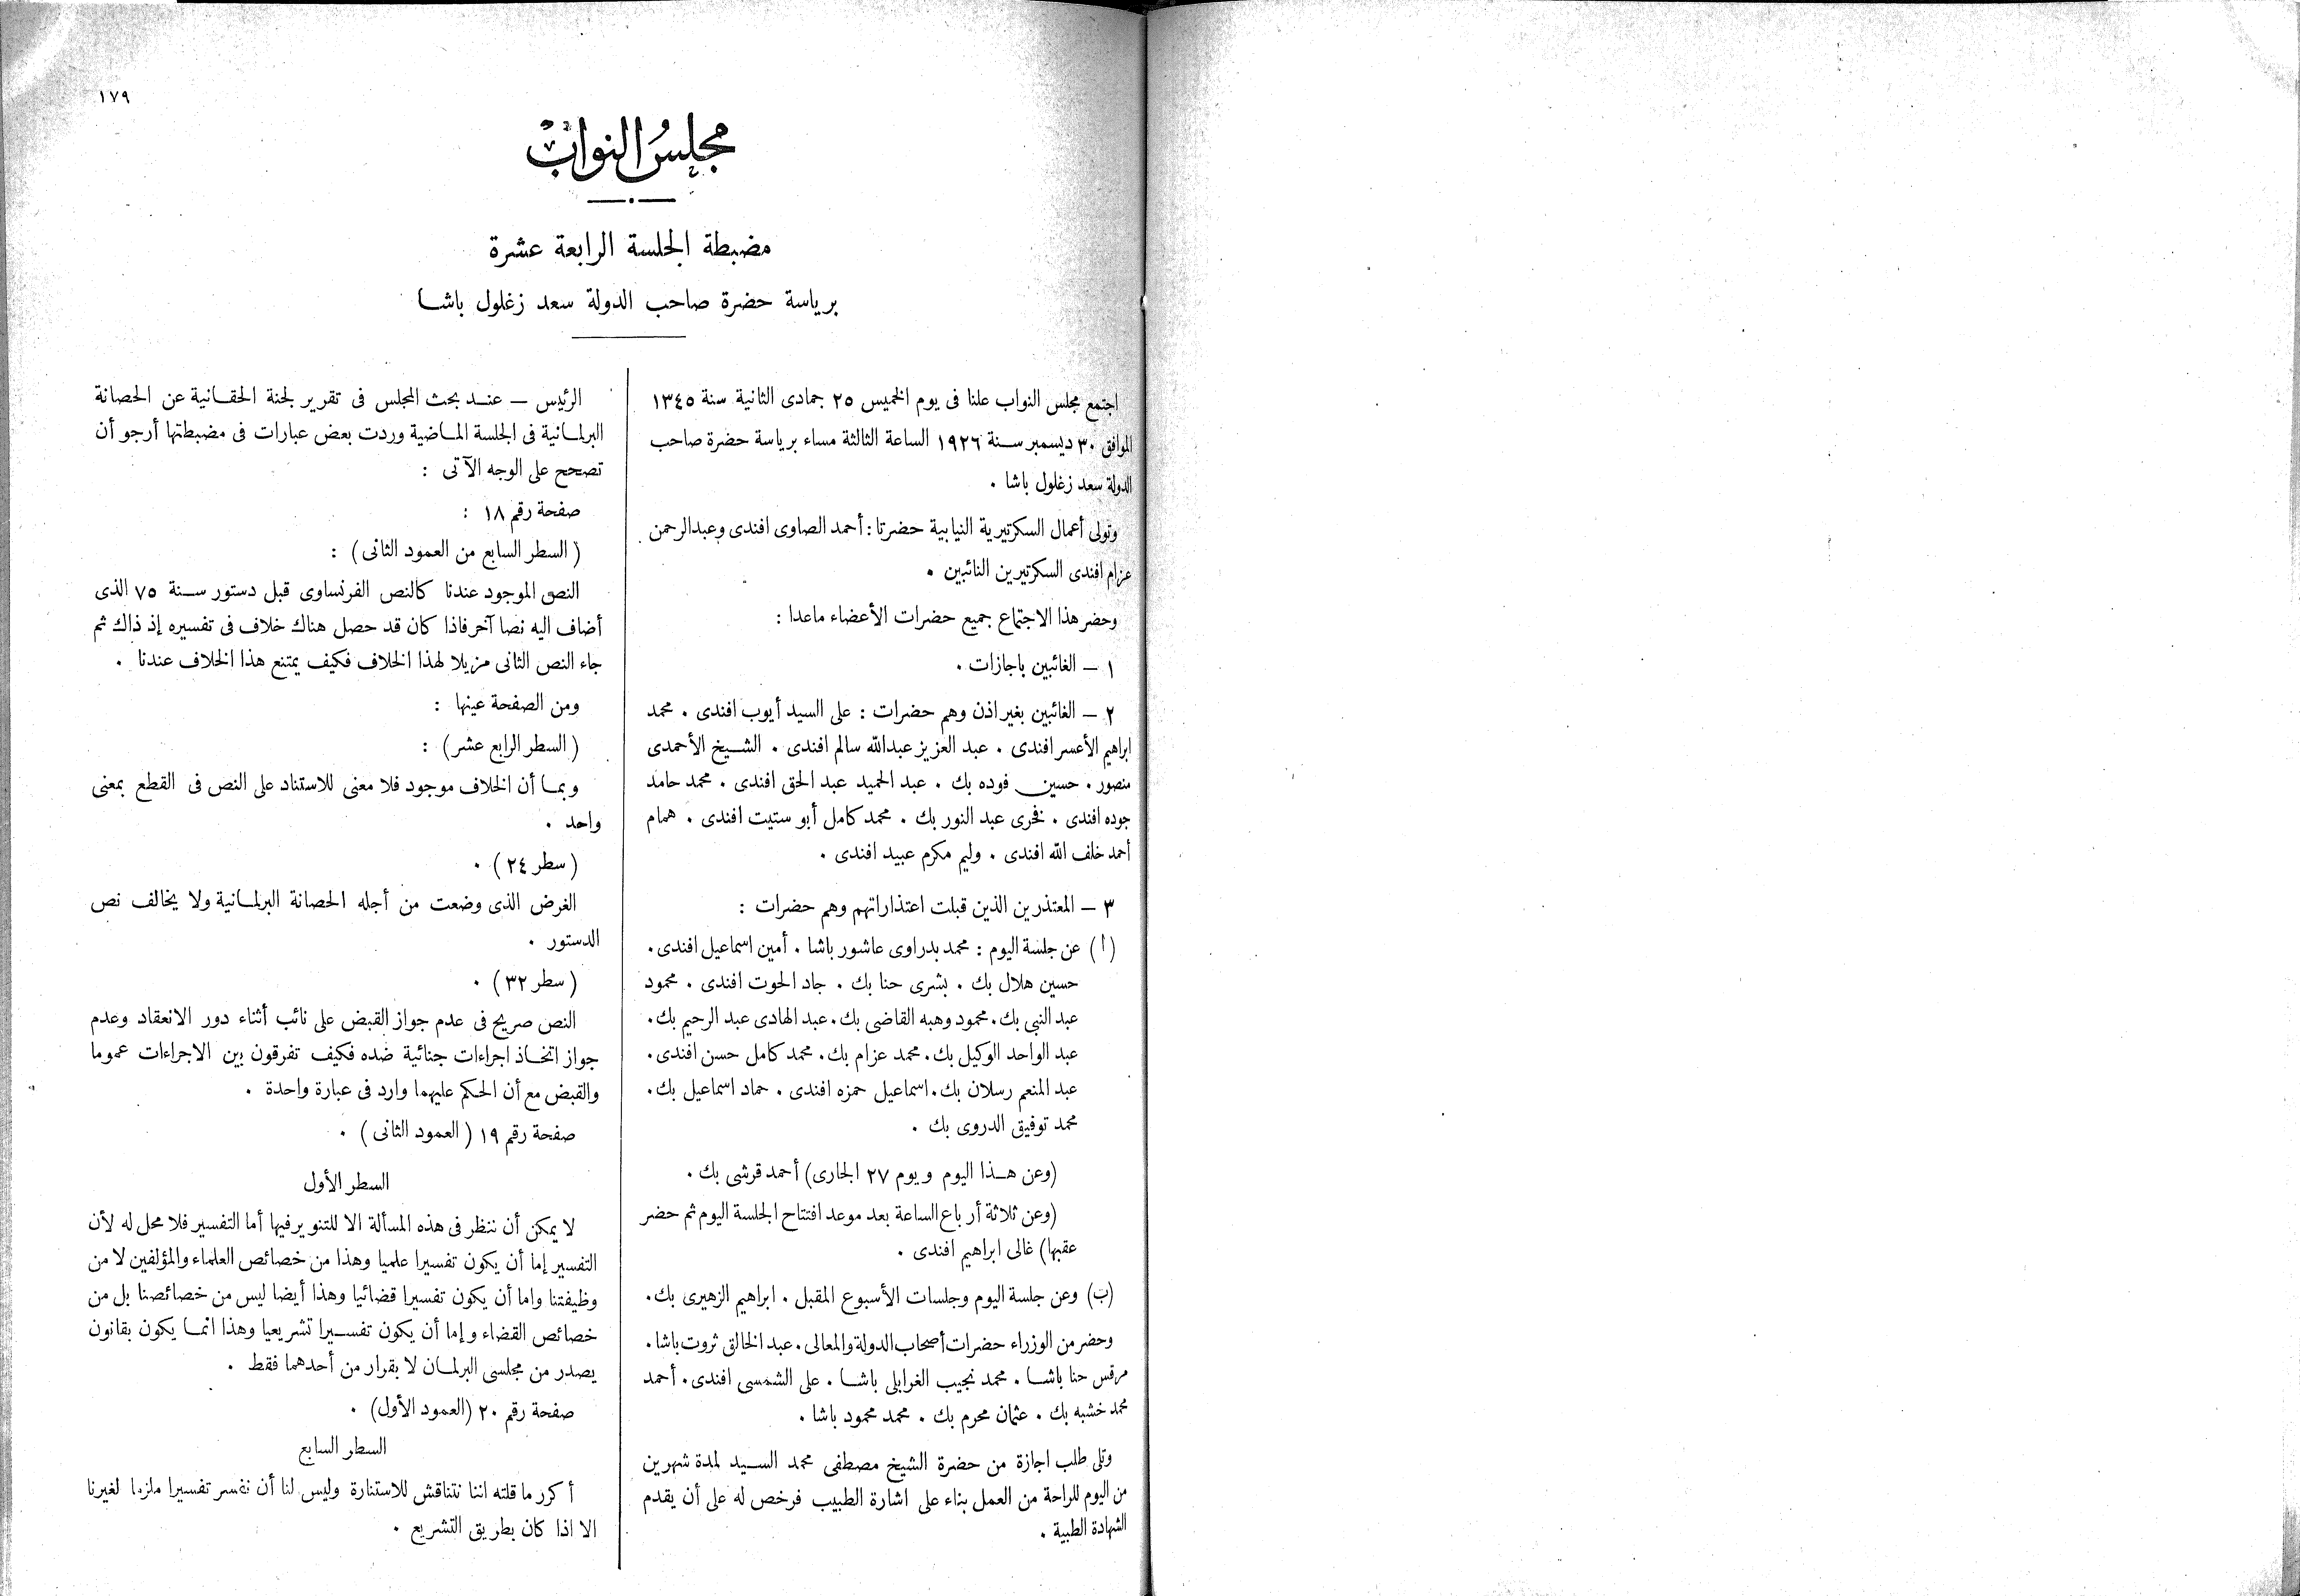 ١٧٩
مجلس النواب
مضبطة الجلسة الرابعة عشرة
برياسة حضرة صاحب الدولة سعد زغلول باشا
اجتمع مجلس النواب علنا فى يوم الخميس ٢٥ جمادى الثانية سنة ١٣٤٥
الموافق ٣٠ ديسمبر سنة ١٩٢٦ الساعة الثالثة مساء برياسة حضرة صاحب
الدولة سعد زغلول باشا .
وتولى أعمال السكرتيرية النيابية حضرتا : أحمد الصاوى افندى وعبدالرحمن
عزام افندى السكرتيرين النائبين .
وحضر هذا الاجتماع جميع حضرات الأعضاء ماعدا :
١ – الغائبين باجازات .
٢ – الغائبين بغير اذن وهم حضرات : على السيد أيوب افندى . محمد
ابراهيم الأعسر افندى . عبد العزيز عبدالله سالم افندى . الشيخ الأحمدى
منصور . حسين فوده بك . عبد الحميد عبد الحق افندى . محمد حامد
جوده افندى . فخرى عبد النور بك . محمد كامل أبو ستيت افندى . همام
أحمد خلف الله افندى . وليم مكرم عبيد افندى .
٣ – المعتذرين الذين قبلت اعتذاراتهم وهم حضرات :
(أ) عن جلسة اليوم : محمد بدراوى عاشور باشا . أمين اسماعيل افندى .
حسين هلال بك . بشرى حنا بك . جاد الحوت افندى . محمود
عبد النبى بك . محمود وهبه القاضى بك . عبد الهادى عبد الرحيم بك .
عبد الواحد الوكيل بك . محمد عزام بك . محمد كامل حسن افندى .
عبد المنعم رسلان بك . اسماعيل حمزه افندى . حماد اسماعيل بك .
محمد توفيق الدروى بك .
(وعن هذا اليوم ويوم ٢٧ الجارى) أحمد قرشى بك .
(وعن ثلاثة أرباع الساعة بعد موعد افتتاح الجلسة اليوم ثم حضر
عقبها) غالى ابراهيم افندى .
(ب) وعن جلسة اليوم وجلسات الأسبوع المقبل . ابراهيم الزهيرى بك .
وحضر من الوزراء حضرات أصحاب الدولة والمعالى . عبد الخالق ثروت باشا .
مرقس حنا باشا . محمد نجيب الغرابلى باشا . على الشمسى افندى . أحمد
محمد خشبه بك . عثمان محرم بك . محمد محمود باشا .
وتلى طلب اجازة من حضرة الشيخ مصطفى محمد السيد لمدة شهرين
من اليوم للراحة من العمل بناء على اشارة الطبيب فرخص له على أن يقدم
الشهادة الطبية .
الرئيس – عند بحث المجلس فى تقرير لجنة الحقانية عن الحصانة
البرلمانية فى الجلسة الماضية وردت بعض عبارات فى مضبطتها أرجو أن
تصحح على الوجه الآتى :
صفحة رقم ١٨ :
(السطر السابع من العمود الثانى) :
النص الموجود عندنا كالنص الفرنساوى قبل دستور سنة ٧٥ الذى
أضاف اليه نصا آخر فاذا كان قد حصل هناك خلاف فى تفسيره إذ ذاك ثم
جاء النص الثانى مزيلا لهذا الخلاف فكيف يمتنع هذا الخلاف عندنا .
ومن الصفحة عينها :
(السطر الرابع عشر) :
وبما أن الخلاف موجود فلا معنى للاستناد على النص فى القطع بمعنى
واحد .
(سطر ٢٤) .
الغرض الذى وضعت من أجله الحصانة البرلمانية ولا يخالف نص
الدستور .
(سطر ٣٢) .
النص صريح فى عدم جواز القبض على نائب أثناء دور الانعقاد وعدم
جواز اتخاذ اجراءات جنائية ضده فكيف تفرقون بين الاجراءات عموما
والقبض مع أن الحكم عليهما وارد فى عبارة واحدة .
صفحة رقم ١٩ (العمود الثانى) .
السطر الأول
لا يمكن أن ننظر فى هذه المسألة الا للتنوير فيها أما التفسير فلا محل له لأن
التفسير إما أن يكون تفسيرا علميا وهذا من خصائص العلماء والمؤلفين لا من
وظيفتنا واما أن يكون تفسيرا قضائيا وهذا أيضا ليس من خصائصنا بل من
خصائص القضاء وإما أن يكون تفسيرا تشريعيا وهذا انما يكون بقانون
يصدر من مجلسى البرلمان لا بقرار من أحدهما فقط .
صفحة رقم ٢٠ (العمود الأول) .
السطر السابع
أكرر ما قلته اننا نتناقش للاستنارة وليس لنا أن نفسر تفسيرا ملزما لغيرنا
الا اذا كان بطريق التشريع .